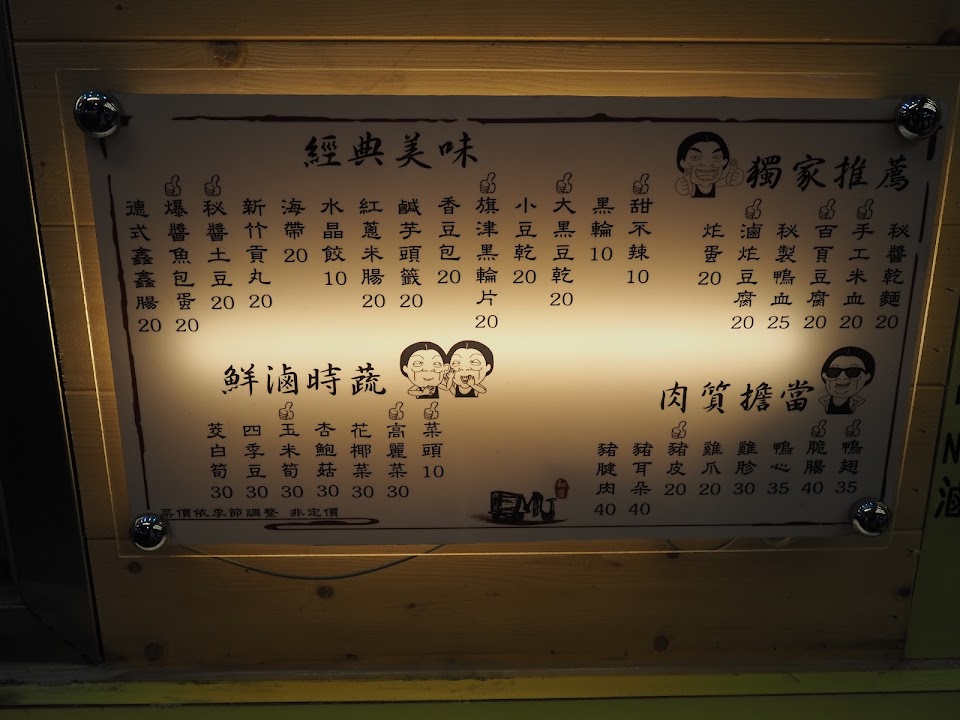 獨家推薦
秘醬乾麵 20
手工米血 20
百頁豆腐 20
秘製鴨血 25
滷炸豆腐 20
炸蛋 20
經典美味
甜不辣 10
黑輪 10
大黑豆乾 20
小豆乾 20
旗津黑輪片 20
香豆包 20
鹹芋頭籤 20
紅蔥米腸 20
水晶餃 10
海帶 20
新竹貢丸 20
秘醬土豆 20
爆醬魚包蛋 20
德式鑫鑫腸 20
肉質擔當
鴨翅 35
脆腸 40
鴨心 35
雞胗 30
雞爪 20
豬皮 20
豬耳朵 40
豬腱肉 40
鮮滷時蔬
菜頭 10
高麗菜 30
花椰菜 30
杏鮑菇 30
玉米筍 30
四季豆 30
茭白筍 30
菜價依季節調整 非定價
滷